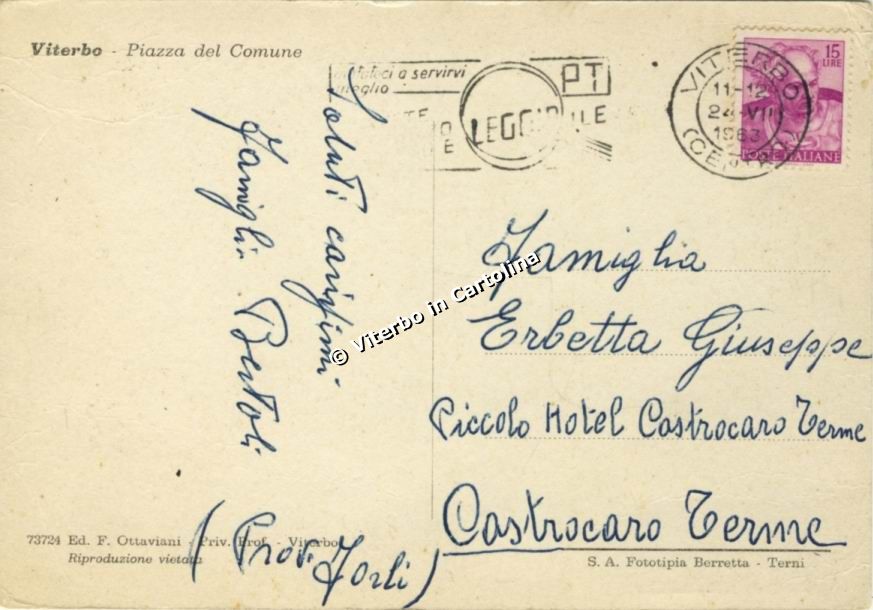 Viterbo - Piazza del Comune
aiutateci a servirvi
meglio
PT
LEGGIBILE
VITERBO
11-12
24-VII
1963
(CENTRO)
15
LIRE
POSTE ITALIANE
Saluti carissimi
Famiglia Bertoli
Famiglia
Erbetta Giuseppe
Piccolo Hotel Castrocaro Terme
Castrocaro Terme
(Prov. Forlì)
© Viterbo in Cartolina
73724 Ed. F. Ottaviani - Priv. Prof. - Viterbo
Riproduzione vietata
S. A. Fototipia Berretta - Terni